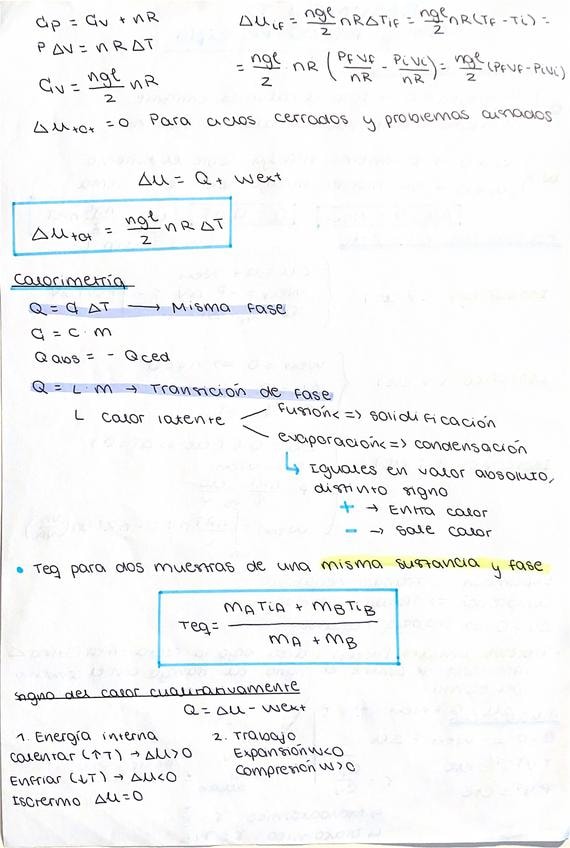 Cp = Cv + nR
P ΔV = n R ΔT
Cv = ngl/2 nR
ΔUif = ngl/2 nRΔTif = ngl/2 nR(Tf - Ti) =
= ngl/2 nR (PfVf/nR - PiVi/nR) = ngl/2 (PfVf - PiVi)
ΔUtot = 0 Para ciclos cerrados y problemas aislados
ΔU = Q + Wext
ΔUtot = ngl/2 nR ΔT
Calorimetría
Q = C ΔT → Misma Fase
C = c · m
Qabs = - Qced
Q = L · m → Transición de Fase
L calor latente
fusión <=> solidificación
evaporación <=> condensación
↳ Iguales en valor absoluto,
distinto signo
+ → Entra calor
- → Sale calor
• Teq para dos muestras de una misma sustancia y fase
Teq = mATiA + mBTiB / mA + mB
signo del calor cualitativamente
Q = ΔU - Wext
1. Energía interna
Calentar (↑T) → ΔU>0
Enfriar (↓T) → ΔU<0
Isotermo ΔU=0
2. Trabajo
Expansión W<0
Compresión W>0